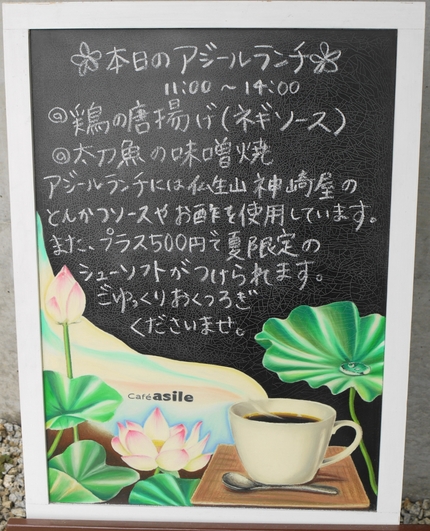 本日のアジールランチ
11:00～14:00
◎鶏の唐揚げ(ネギソース)
◎太刀魚の味噌焼
アジールランチには仏生山神崎屋の
とんかつソースやお酢を使用しています。
また、プラス500円で夏限定の
シューソフトがつけられます。
ごゆっくりおくつろぎ
くださいませ。
Café asile